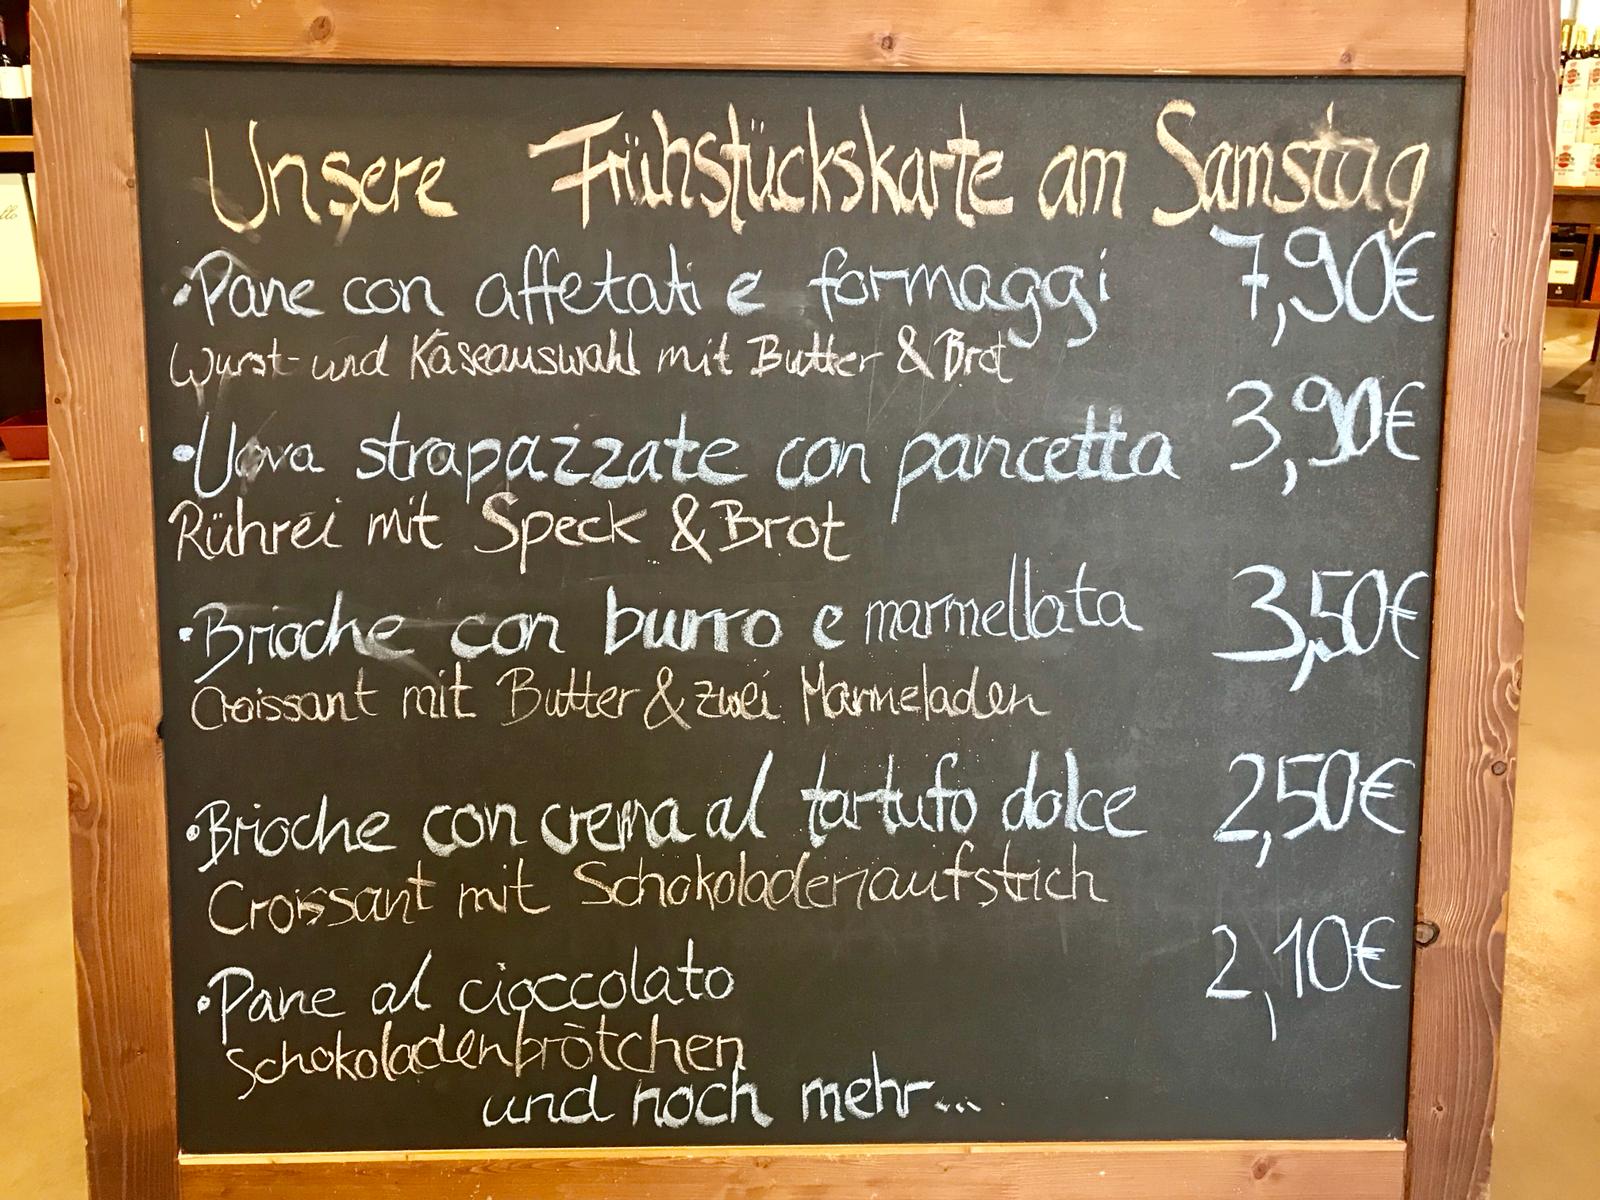 Unsere Frühstückskarte am Samstag
•Pane con affetati e formaggi 7,90€
Wurst- und Käseauswahl mit Butter & Brot
•Uova strapazzate con pancetta 3,90€
Rührei mit Speck & Brot
•Brioche con burro e marmellata 3,50€
Croissant mit Butter & zwei Marmeladen
•Brioche con crema al tartufo dolce 2,50€
Croissant mit Schokoladenaufstrich
•Pane al cioccolato 2,10€
Schokoladenbrötchen
und noch mehr...